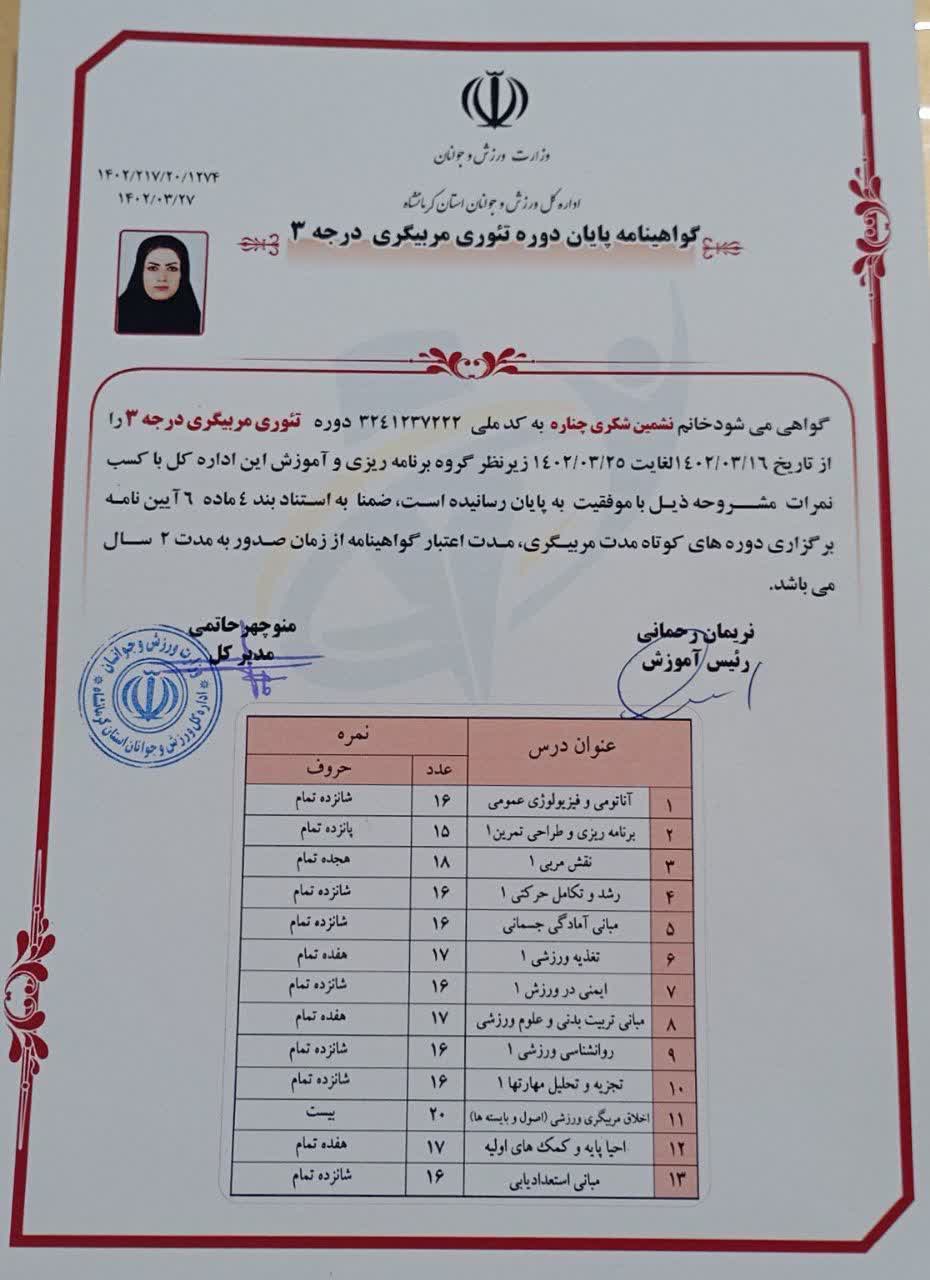 وزارت ورزش و جوانان
اداره کل ورزش و جوانان استان کرمانشاه
۱۴۰۲/۲۱۷/۲۰/۱۲۷۴
۱۴۰۲/۰۳/۲۷
گواهینامه پایان دوره تئوری مربیگری درجه ۳
گواهی می شود خانم نشمین شکری چناره به کد ملی ۳۲٤۱۲۳۷۲۲۲ دوره تئوری مربیگری درجه ۳ را
از تاریخ ۱٤۰۲/۰۳/۱٦ لغایت ۱٤۰۲/۰۳/۲٥ زیرنظر گروه برنامه ریزی و آموزش این اداره کل با کسب
نمرات مشروحه ذیل با موفقیت به پایان رسانیده است، ضمنا به استناد بند ٤ ماده ٦ آیین نامه
برگزاری دوره های کوتاه مدت مربیگری، مدت اعتبار گواهینامه از زمان صدور به مدت ۲ سال
می باشد.
نریمان رحمانی
رئیس آموزش
منوچهر حاتمی
مدیر کل
وزارت ورزش و جوانان
اداره کل ورزش و جوانان استان کرمانشاه
عنوان درس نمره
عدد حروف
۱ آناتومی و فیزیولوژی عمومی ۱۶ شانزده تمام
۲ برنامه ریزی و طراحی تمرین۱ ۱۵ پانزده تمام
۳ نقش مربی ۱ ۱۸ هجده تمام
۴ رشد و تکامل حرکتی ۱ ۱۶ شانزده تمام
۵ مبانی آمادگی جسمانی ۱۶ شانزده تمام
۶ تغذیه ورزشی ۱ ۱۷ هفده تمام
۷ ایمنی در ورزش ۱ ۱۶ شانزده تمام
۸ مبانی تربیت بدنی و علوم ورزشی ۱۷ هفده تمام
۹ روانشناسی ورزشی ۱ ۱۶ شانزده تمام
۱۰ تجزیه و تحلیل مهارتها ۱ ۱۶ شانزده تمام
۱۱ اخلاق مربیگری ورزشی (اصول و بایسته ها) ۲۰ بیست
۱۲ احیا پایه و کمک های اولیه ۱۷ هفده تمام
۱۳ مبانی استعدادیابی ۱۶ شانزده تمام